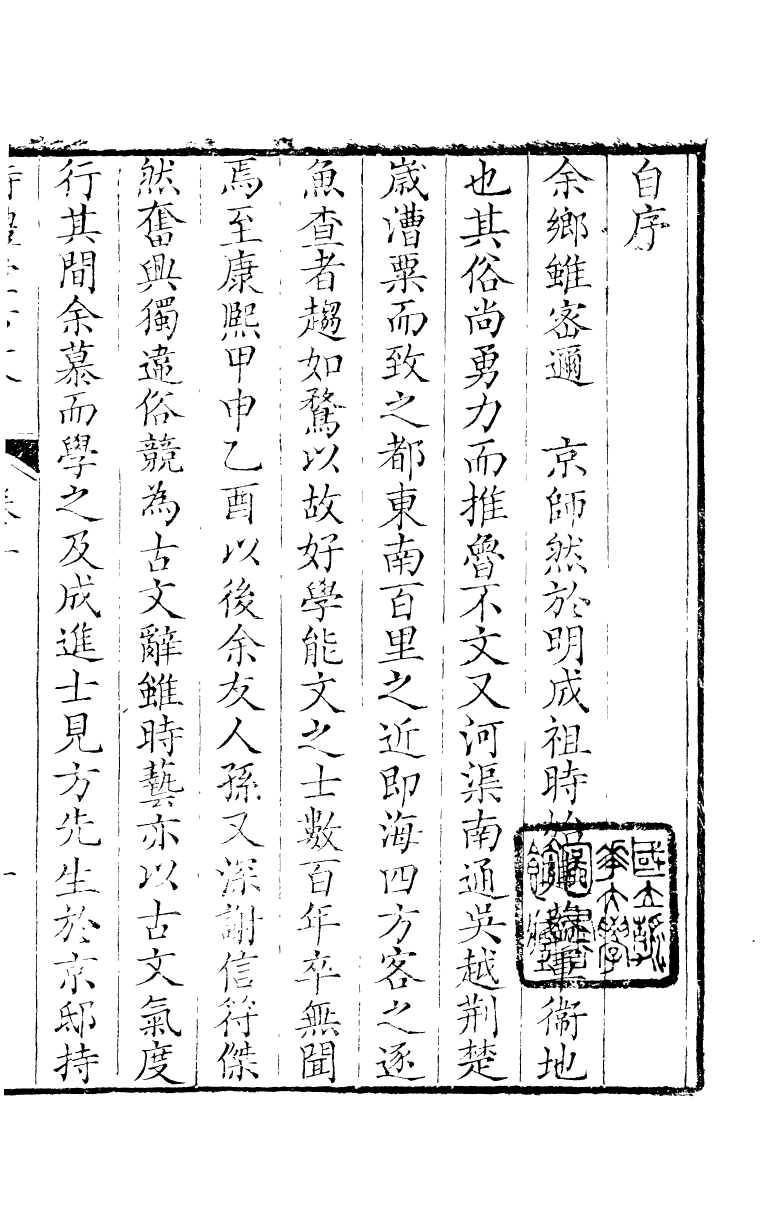 自序
余鄉雖密邇　京師然於明成祖時始　軍衛地
也其俗尚勇力而推魯不文又河渠南通吳越荆楚
嵗漕粟而致之都東南百里之近即海四方客之逐
魚查者趨如騖以故好學能文之士數百年卒無聞
焉至康熙甲申乙酉以後余友人孫又深謝信符傑
然奮興獨違俗競為古文辭雖時藝亦以古文氣度
行其間余慕而學之及成進士見方先生於京邸持
國立
大學